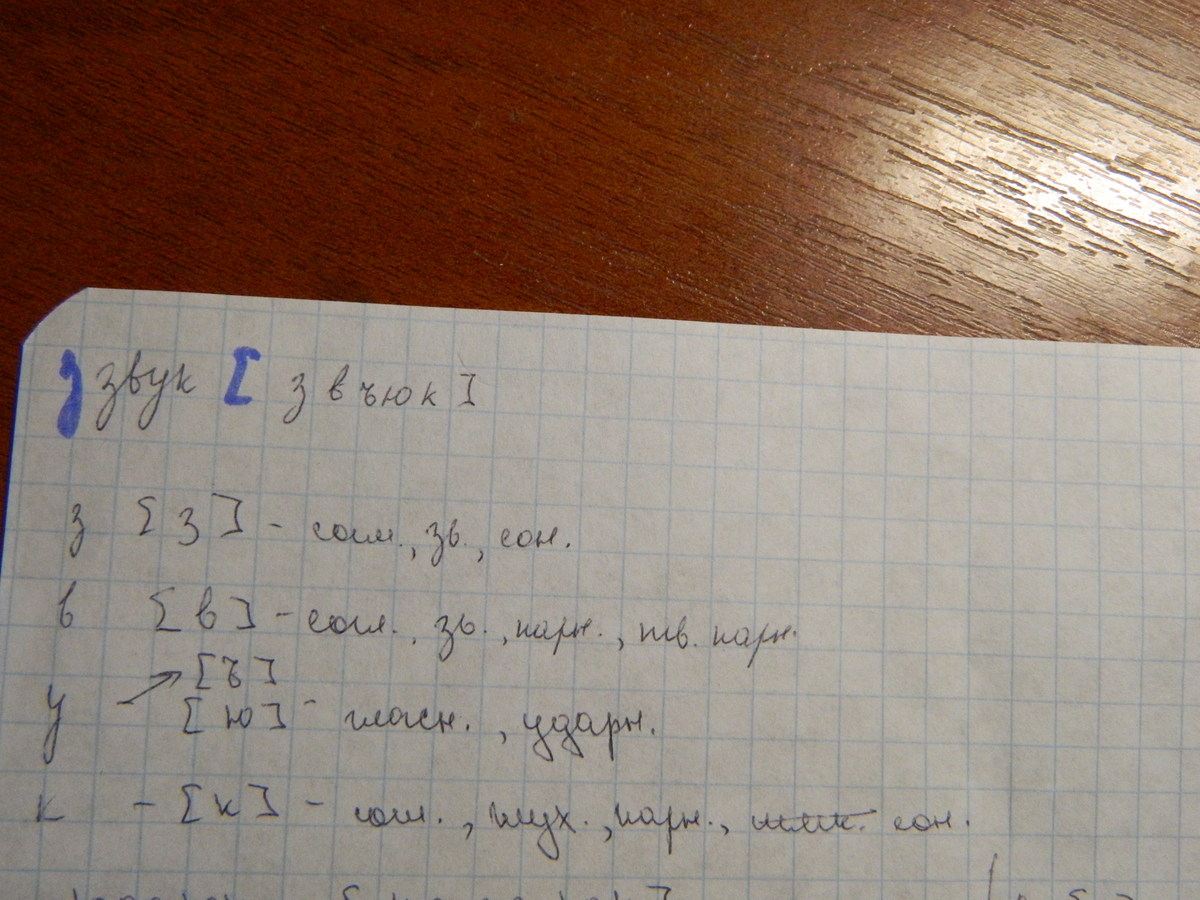 з звук [ звъюк ]
з [ з ] - согл., зв., сон.
в [ в ] - согл., зв., парн., тв. парн.
[ ъ ]
у [ ю ] - гласн., ударн.
к - [ к ] - согл., глух., парн., сон.